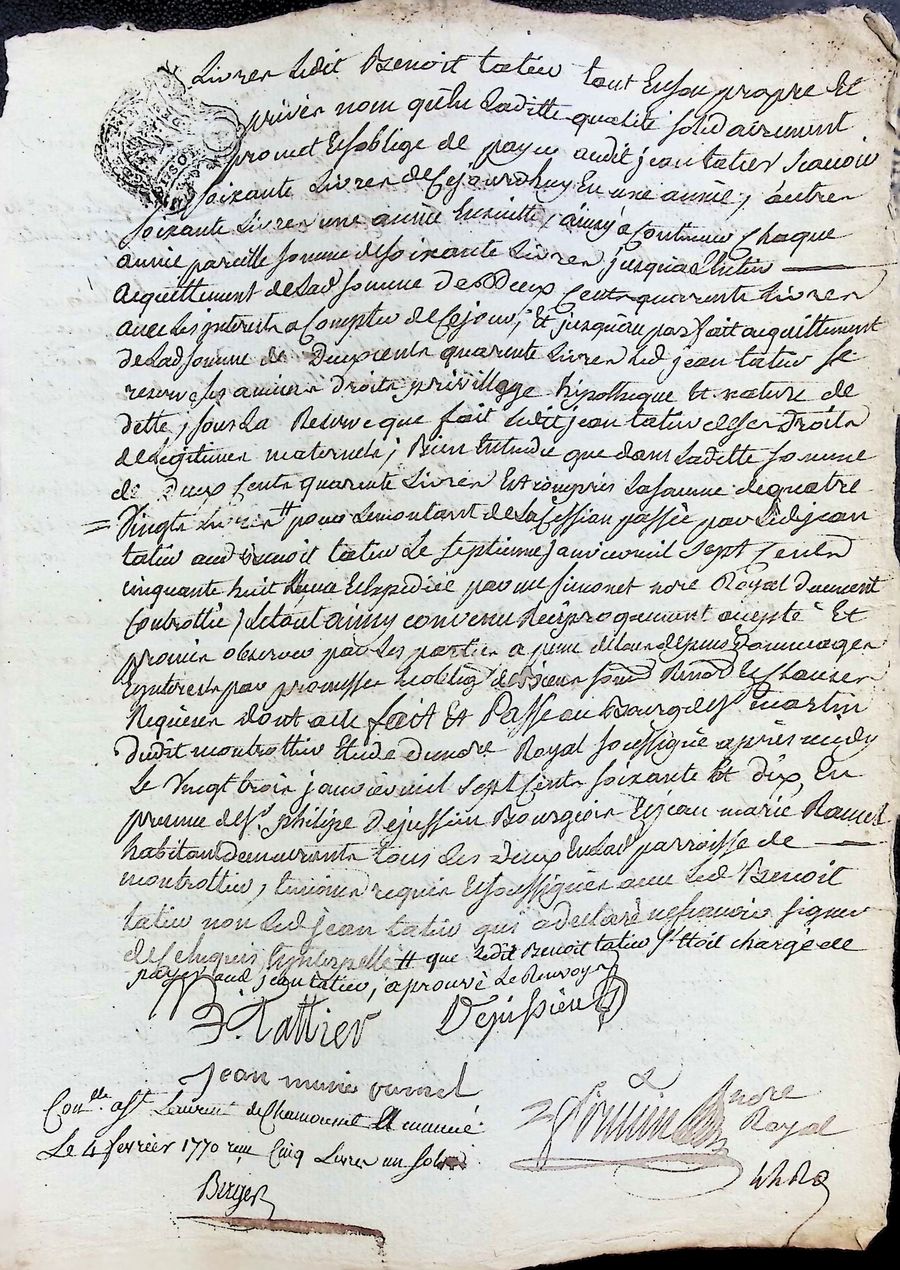 Livres Ledit Benoit tatieu tant en son propre Et
privés nom qu'en Laditte qualité solidairement
promet Et soblige de payer audit jean tatieu scauoir
soixante Livres de Cejourdhuy En une année, autres
soixante Livres une année Ensuitte, ainsy a Continuer Chaque
année pareille somme de soixante Livres jusqua Lentier
acquittement de Lad somme des Deux Cents quarente Livres
avec Les interests a Compter de Cejour, Et jusquau parfait acquittement
de Lad somme de Deux cents quarente Livres Led jean tatieu se
reserve ses anciens droits privillege hipothique Et nature de
dette, sous La Reserve que fait Ledit jean tatieu de ses Droits
de Legitimes maternels; Bien Entendu que dans Laditte somme
de Deux Cents quarente Livres Est compris La somme de quatre
Vingts Livres pour Le montant de La Cession passée par Led jean
tatieu aud Benoit tatieu Le septieme janvier mil sept Cents
cinquante huit Reçue Et Expediée par me simonet nore Royal duement
Controllée) Le tout ainsy convenu Reciproquement accepté Et
promis observer par Les parties a peine de tous depens Dommages
Et interests par promesses oblig de Biens soum Renon Et Clauses
Requises dont acte fait Et Passé au Bourg de St martin
dudit montrottier Etude du nore Royal soussigné après midy
Le Vingt trois janvier mil sept Cents soixante Et dix, En
presence de sr philipe Dejussieu Bourgeois Et jean marie Ramel
habitant demeurants tous Les Deux En Lad parroisse de
montrottier, temoins requis Et soussignés avec Led Benoit
tatieu non Led jean tatieu qui a declaré ne scavoir signer
de ce Enquis Et interpellé # que Ledit Benoit tatieu s'etoit chargé de
payer aud jean tatieu, aprouvé Le Renvoy
B. Tattier Dejussieu
jean marie ramel
nore
Royal
Con.lle a St Laurent de Chamousset
Le 4 fevrier 1770 reçu Cinq Livres un sol
Berger